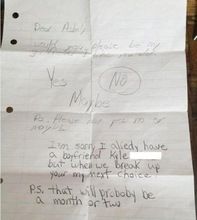 Dear Ashly
would you please be my
Yes
No
Maybe
P.S. Please
I'm sorry I alredy have
a boyfriend Kyle
but when we break up
your my next choice!
P.S. that will probaby be
a month or two